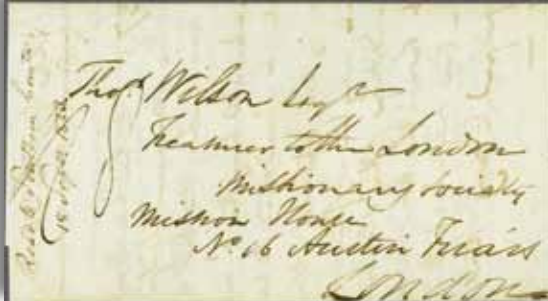 Thos. Wilson Esqr
Treasurer to the London
Missionary Society
Mission House
No 16 Austin Friars
London